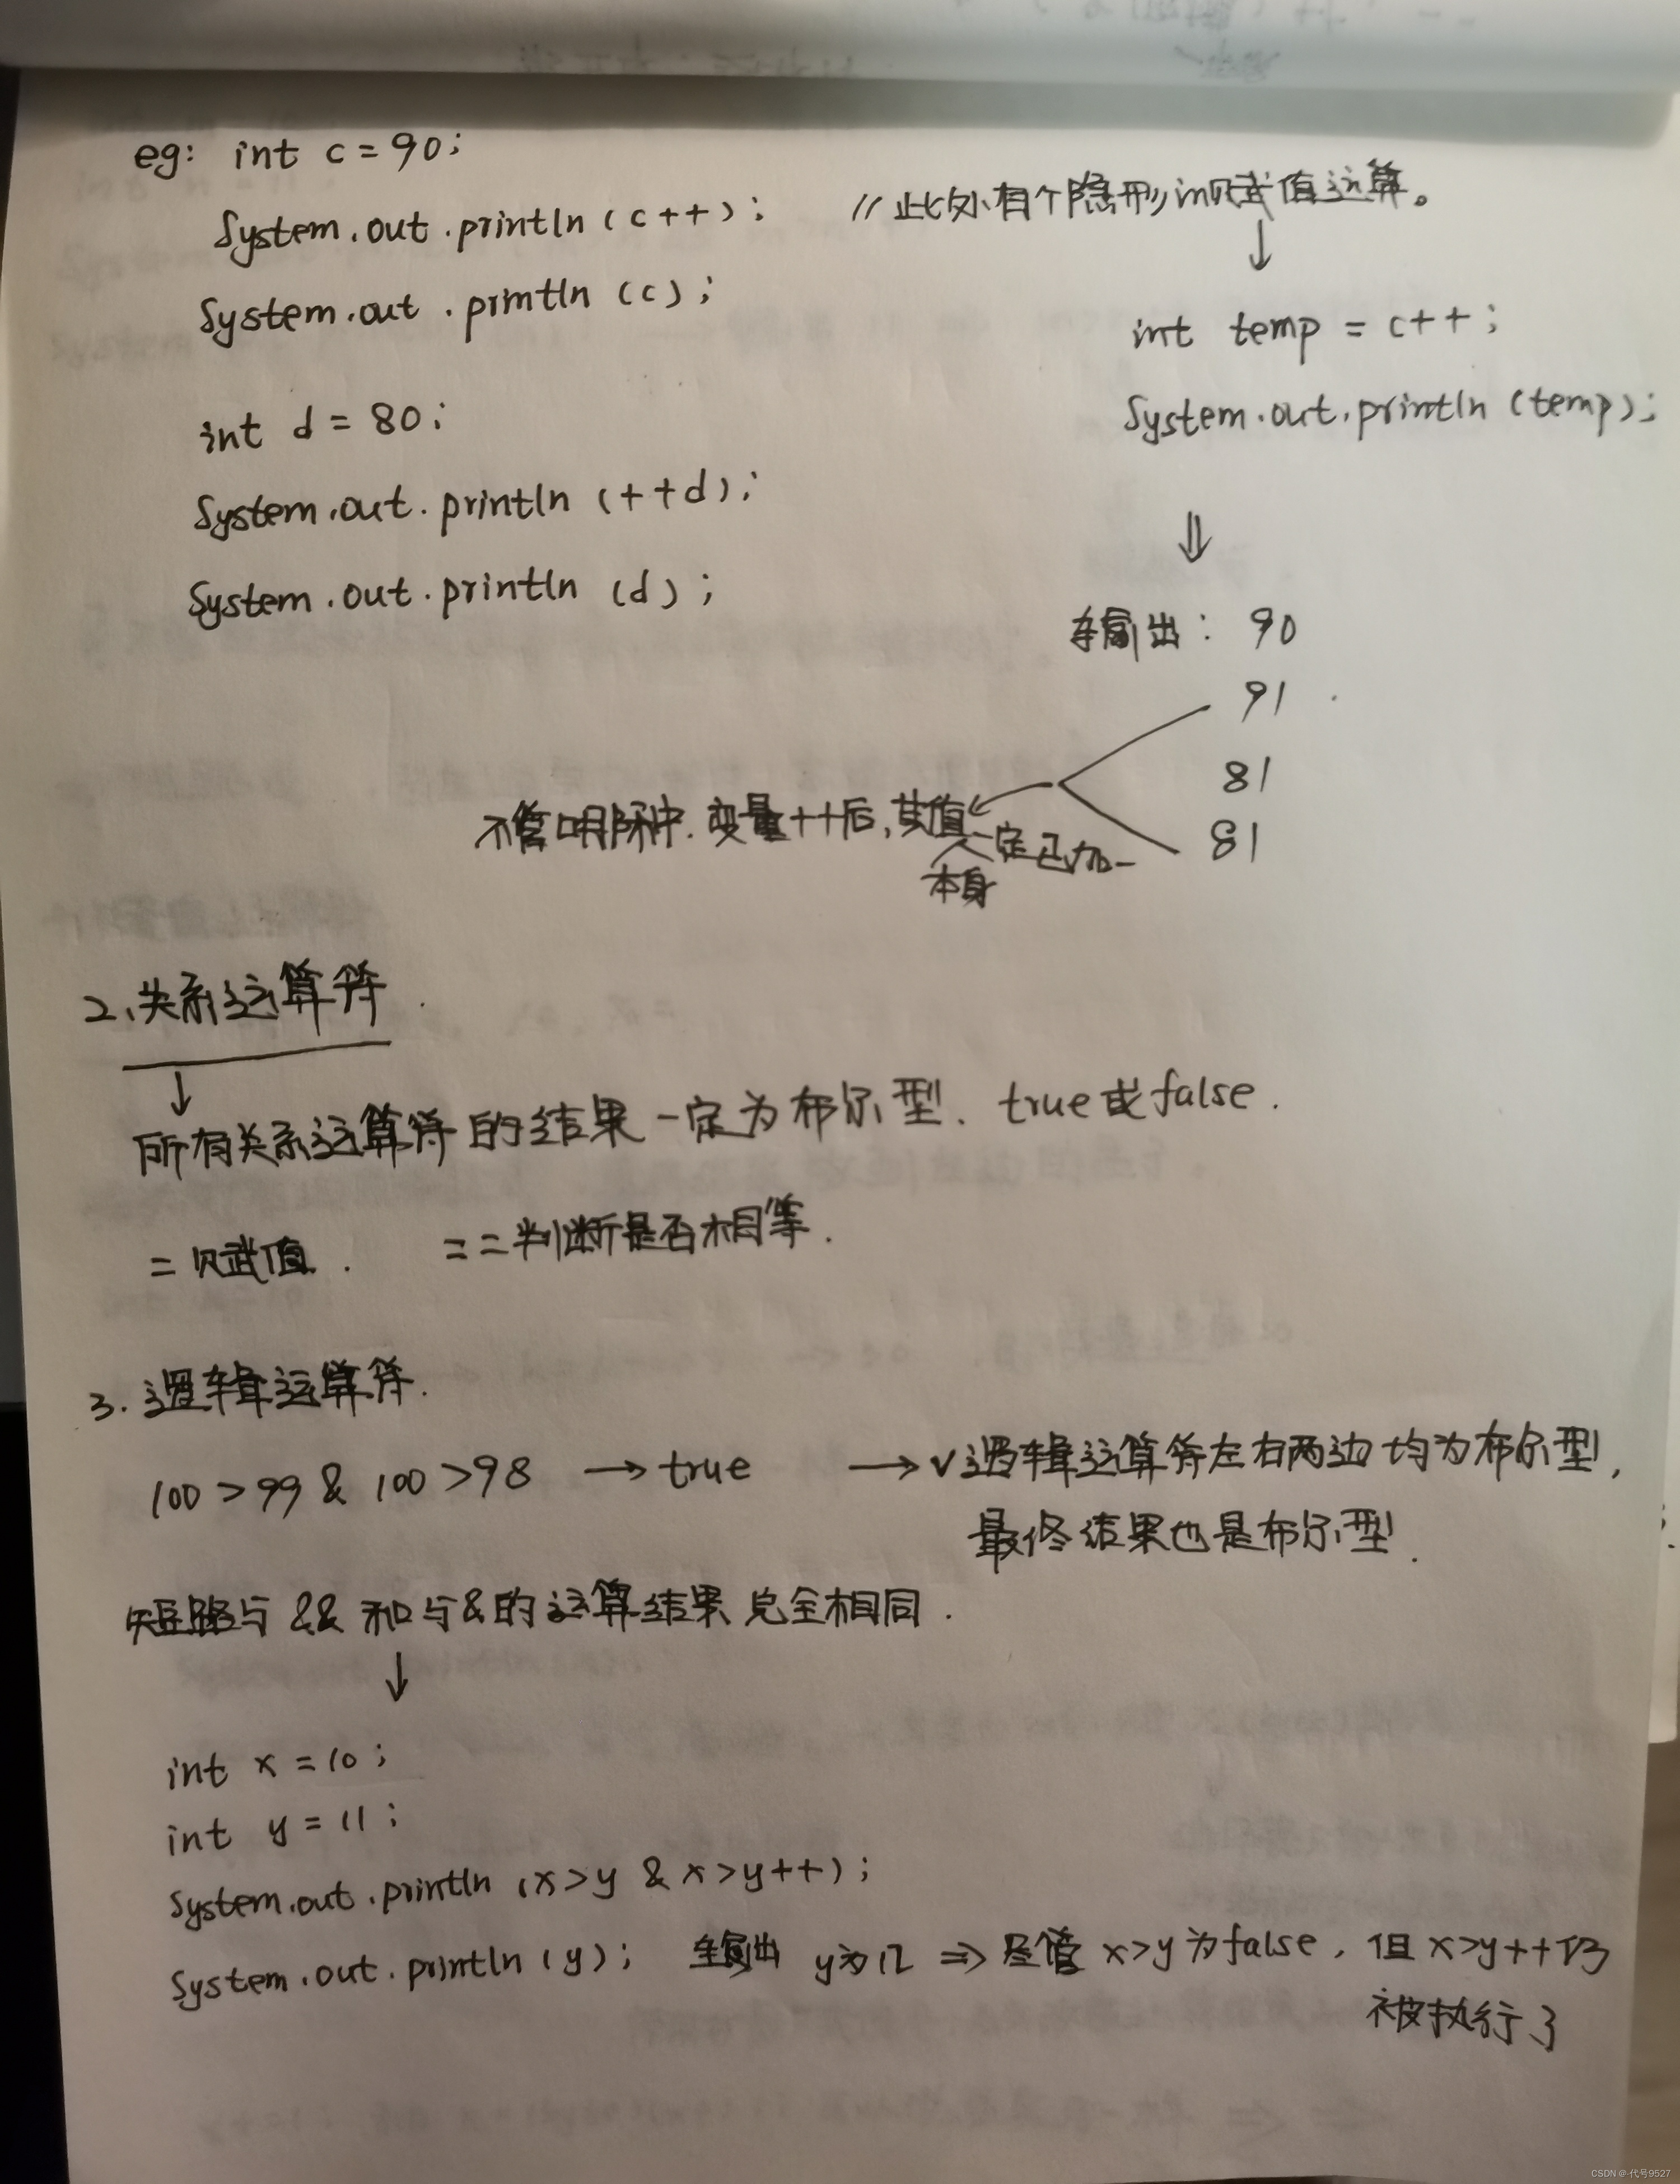 eg: int c = 90;
System.out.println(c++); //此处有个隐形的赋值运算。
↓
System.out.println(c);
int temp = c++;
int d = 80;
System.out.println(temp);
System.out.println(++d);
⇓
System.out.println(d);
输出: 90
91
81
81
不管哪种.变量++后,其值一定已加一
本身
2、关系运算符.
↓
所有关系运算符的结果一定为布尔型. true或false.
= 赋值. ==判断是否相等.
3. 逻辑运算符.
100>99 & 100>98 → true → ✓逻辑运算符左右两边均为布尔型,
最终结果也是布尔型.
短路与 && 和与&的运算结果完全相同.
↓
int x = 10;
int y = 11;
System.out.println(x>y & x>y++);
System.out.println(y); 输出 y为12 ⇒ 尽管 x>y为false, 但x>y++仍
被执行了
CSDN @-代号9527